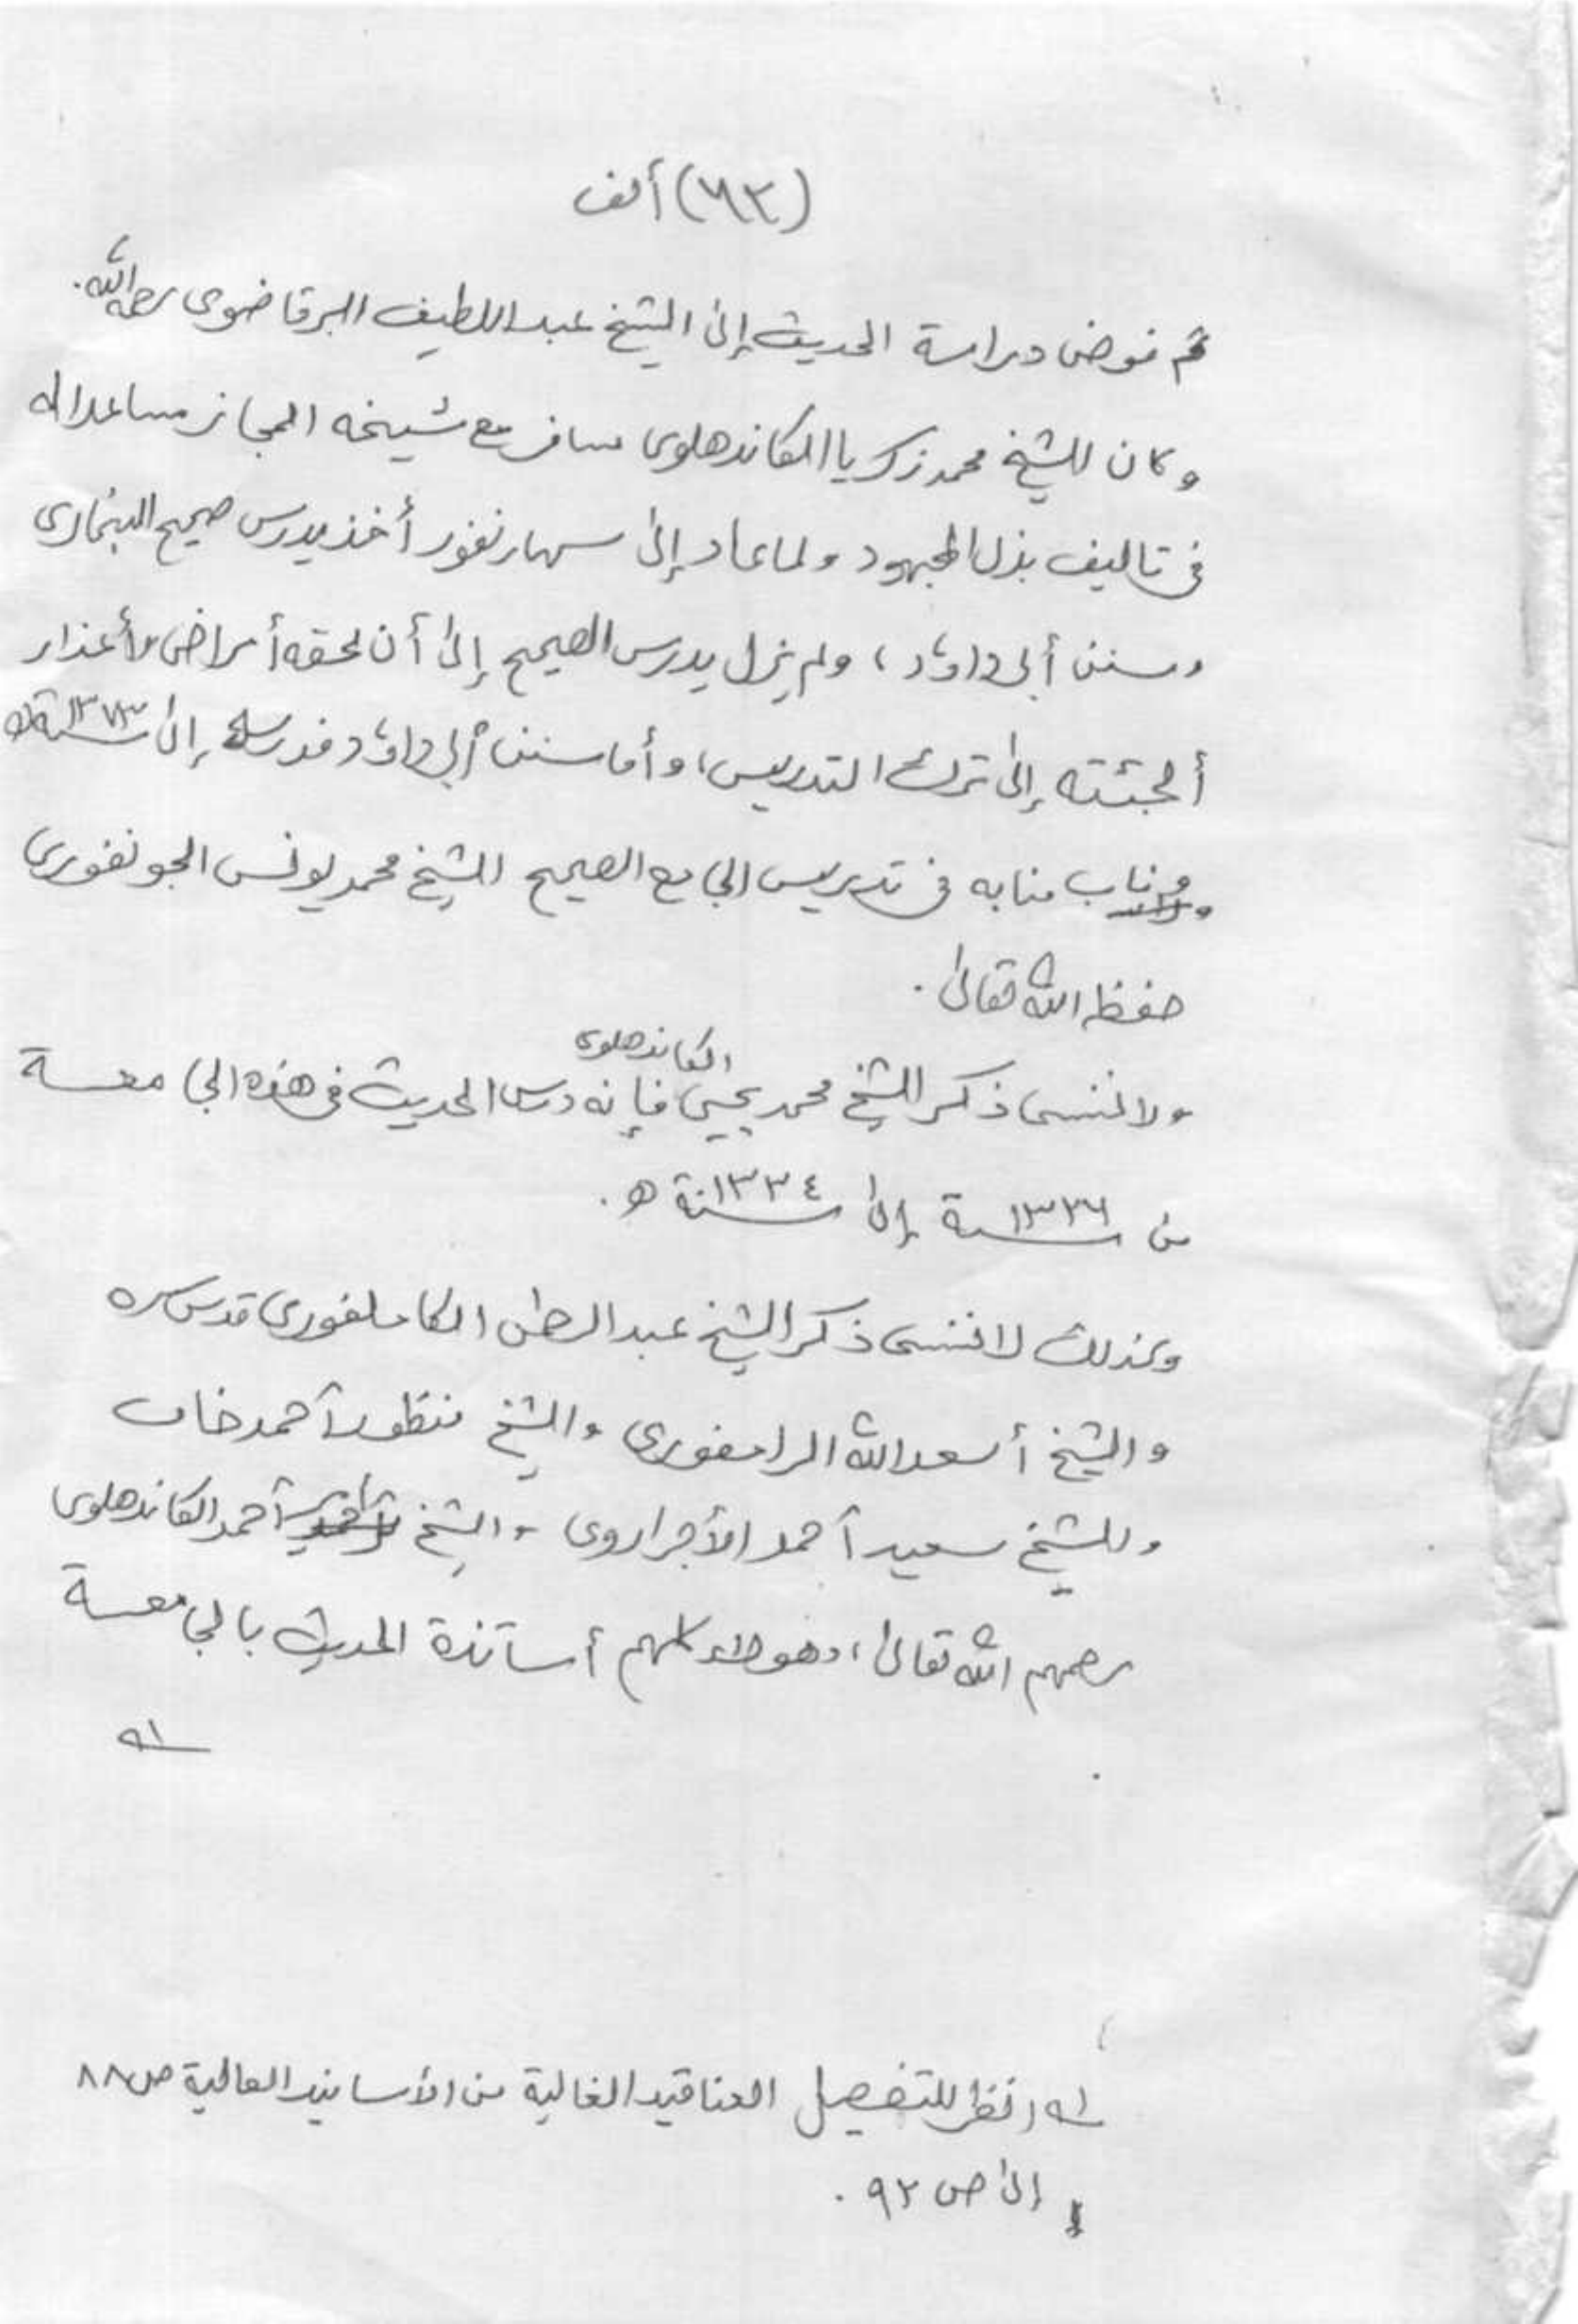 (٦٣) ألف
ثم فوض دراسة الحديث إلى الشيخ عبد اللطيف البرقاضوى رحمه الله.
وكان الشيخ محمد زكريا الكاندهلوى سافر مع شيخه الحجاز مساعدا له
فى تاليف بذل المجهود ولما عاد إلى سهارنفور أخذ يدرس صحيح البخارى
وسنن أبى داؤد، ولم يزل يدرس الصحيح إلى أن لحقه أمراض وأعذار
ألجئته إلى ترك التدريس، وأما سنن أبى داؤد فدرسه إلى سنة
وناب منابه فى تدريس الجامع الصحيح الشيخ محمد يونس الجونفورى
حفظه الله تعالى.
ولا ننسى ذكر الشيخ محمد يحيى الكاندهلوى فإنه درس الحديث فى هذه الجامعة
من سنة إلى سنة ١٣٣٤ ه.
وكذلك لا ننسى ذكر الشيخ عبد الرحمن الكاملفورى قدس سره
والشيخ أسعد الله الرامفورى والشيخ منظور أحمد خان
والشيخ سعيد أحمد الأجراروى والشيخ أحمد الكاندهلوى
رحمهم الله تعالى، وهولاء كلهم أساتذة الحديث بالجامعة
.
؂١ه
؂١ه انظر للتفصيل العناقيد الغالية من الأسانيد العالية ص ٨٨
إلى ص ٩٢.